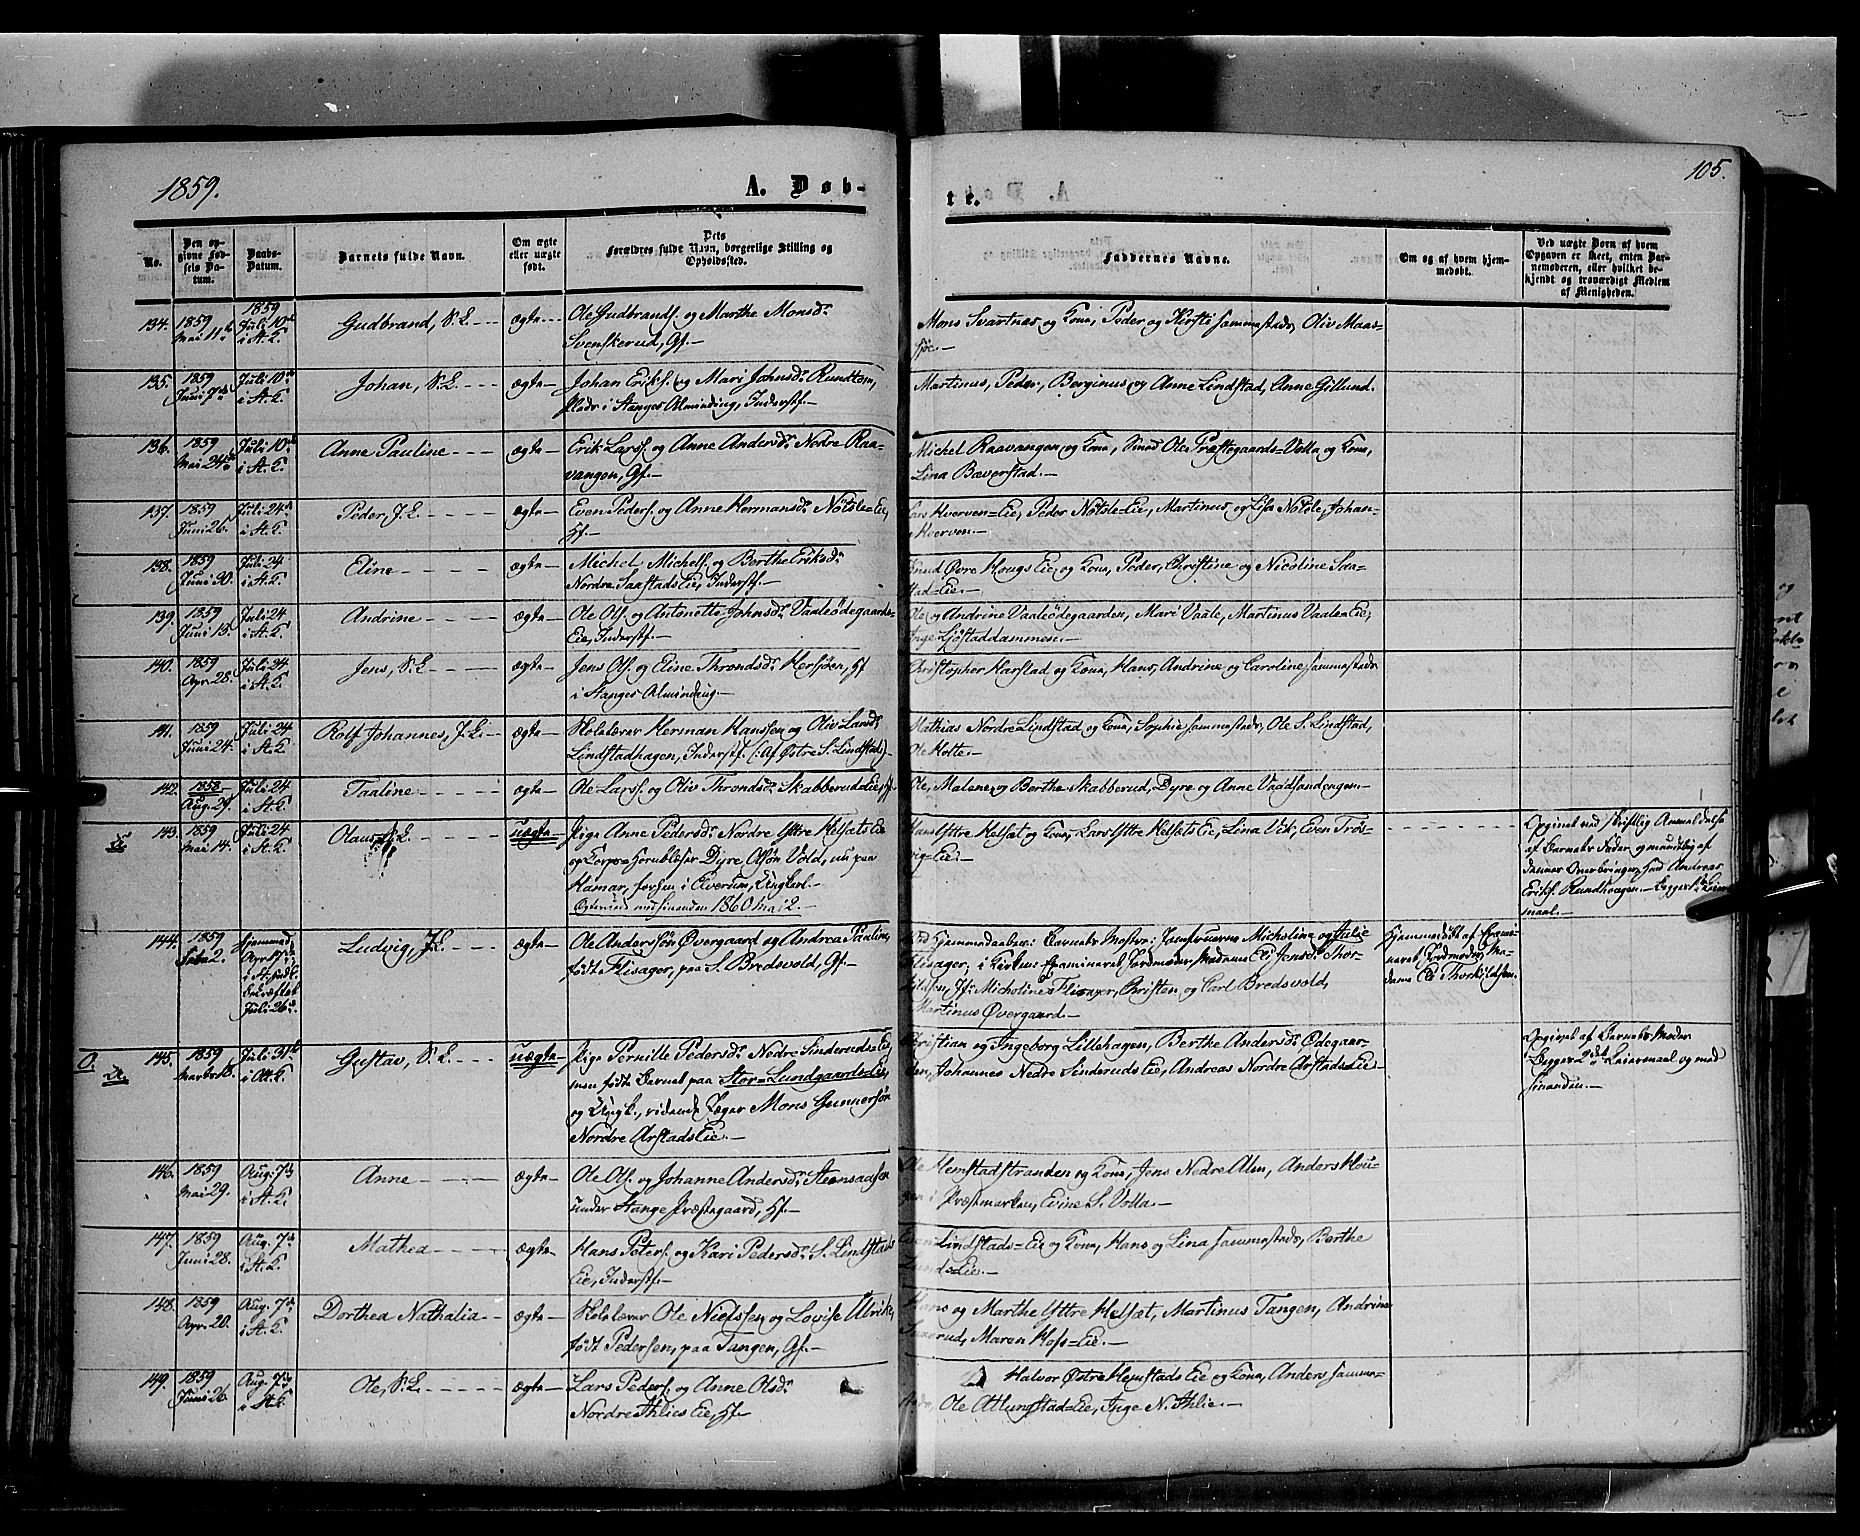 1859.
A. Døb-
te.
105.
No.
Den op-
givne Fød-
sels Da-
tum.
Daabs-
Datum.
Barnets fulde Navn.
Om ægte
eller uægte
født.
Dets
Forældres fulde Navn, borgerlige Stilling og
Opholdssted.
Faddernes Navne.
Om og af hvem hjem-
medøbt.
Ved uægte Børn af hvem
Opgaven er skeet, enten Bar-
nemoderen, eller hvilket be-
kjendt og troværdigt Medlem
af Menigheden.
134. 1859 Mai 11. 1859 Juli 10 i St. K. Gudbrand, S.L. ægte Ole Gudbrands. og Marthe Monsd.
Svenskerud, Gf.
Mons Svartnes og Kone, Peder og Kirsti sammesteds, Oliv Maa-
søe.
135. 1859 Juni 7. Juli 10 i St. K. Johan, S.L. ægte Johan Eriks. og Mari Johnsd. Rundtom,
Plads i Stanges Alminding, Inderstf.
Martinus, Peder, Berginus og Anne Lindstad, Anne Gillund.
136. 1859 Mai 24. Juli 10 i St. K. Anne Pauline ægte Erik Larss. og Anne Andersd. Nedre Raa-
vangen, Gf.
Michel Raavangen og Kone, Ole Præstegaards-Volla og Kone,
Lina Bæverstad.
137. 1859 Juni 26. Juli 24 i St. K. Peder, J.L. ægte Even Peders. og Anne Hermansd. Nøtsle-Eie,
Hf.
Lars Hverven-Eie, Peder Nøtsle-Eie, Martinus og Lisa Nøtsle, Johan-
Hverven.
138. 1859 Juni 20. Juli 24 i St. K. Eline ægte Michel Michels. og Berthe Eriksd.
Nordre Saastads Eie, Inderstf.
Knud Øvre Hougs Eie og Kone, Peder, Christine og Nicoline Saa-
stad-Eie.
139. 1859 Juni 13. Juli 24 i St. K. Andrine ægte Ole Ols. og Antonette Johnsd. Vaaleødegaards-
Eie, Inderstf.
Ole og Andrine Vaaleødegaarden, Mari Vaale, Martinus Vaale-Eie,
Inge Sjøstaddammen.
140. 1859 Apr. 28. Juli 24 i St. K. Jens, S.L. ægte Jens Ols. og Eline Throndsd. Hersøen, Hf
i Stanges Alminding.
Christopher Harstad og Kone, Hans, Andrine og Caroline sammesteds
141. 1859 Juni 24. Juli 24 i St. K. Rolf Johannes, J.L. ægte Skolelærer Herman Hanssen og Oliv Larsd.
Lindstadhagen, Inderstf. (: Af Østre S. Lindstad:)
Mathias Nordre Lindstad og Kone, Sophie sammesteds, Ole S. Lindstad,
Ole Holte.
142. 1858 Aug. 29. Juli 24 i St. K. Taaline ægte Ole Larss. og Oliv Throndsd. Skabberud Eie, Hf.
Ole, Malene og Berthe Skabberud, Dyre og Anne Vaadsandengen.
143. 1859 Mai 14. Juli 24 i St. K. Olaus, S.L. uægte Pige Anne Pedersd. Nordre Yttre Helsets Eie
og Korps-Hornblæser Dyre Olsøn Vold, nu paa
Hamar, forhen i Elverum, Ungkarl.
Ægteviede med hinanden 1860 Mai 2.
Hans Yttre Helset og Kone, Lars Yttre Helsets Eie, Lina Vik, Even Trøs-
vig-Eie.
Opgivet ved skriftlig Anmeldelse
af Barnets Fader og mundtlig af
denne Overbringer, Hud Andreas
Eriks. Rundhaagen. Begges 1ste Leier-
maal.
144. 1859 Febr 2. Hjemmed. Apr i St. K. bekræftet Juli 26. Ludvig, J.L. ægte Ole Andersøn Øvergaard og Andrea Pauline,
født Flisager, paa S. Bredsvold, Gf.
Ved Hjemmedaaben: Barnets Mostre: Jomfruerne Micheline og Julie
Flisager; i Kirken: Examineret Jordmoder Madame Eli Jensd. Thor-
kildsen, Jf. Micheline Flisager, Christen og Carl Bredsvold,
Martinus Øvergaard.
Hjemmedøbt af Exami-
neret Jordmoder Ma-
dame Eli Thorkildsen.
O. 145. 1859 Marts 18. Juli 31 i St. K. Gustav, S.L. uægte Pige Pernille Pedersd. Nedre Sinderuds-Eie,
men født Barnet paa Stor-Lundgaards-Eie,
og Ungk., ridende Jæger Mons Gunnersøn
Nordre Arstads Eie.
Christian og Ingeborg Lillehagen, Berthe Andersd. Ødegaar-
den, Johannes Nedre Sinderuds Eie, Andreas Nordre Arstads Eie.
Opgivet af Barnets Moder
Begges 2det Leiermaal og med
hinanden.
146. 1859 Mai 29. Aug. 7 i St. K. Anne ægte Ole Ols. og Johanne Andersd. Steensaasen
under Stange Præstegaard, Hf.
Ole Hemstadstranden og Kone, Jens Nedre Alm, Anders Hou-
gen i Præstmarken, Eline S. Volla.
147. 1859 Juni 28. Aug. 7 i St. K. Mathea ægte Hans Peters. og Kari Pedersd. S. Lindstads
Eie, Inderstf.
Lindstads-Eie og Kone, Hans og Lina sammesteds, Berthe
Lunds Eie.
148. 1859 Apr. 20. Aug. 7 i St. K. Dorthea Nathalia ægte Skolelærer Ole Nielssen og Lovise Ulrike,
født Pedersen, paa Tangen, Gf.
Hans og Marthe Yttre Helset, Martinus Tangen, Andrine
Maren Hofs-Eie.
149. 1859 Juni 26. Aug. 7 i St. K. Ole, S.L. ægte Lars Peders. og Anne Olsd.
Nordre Ihlies Eie, Hf.
Halvor Østre Hemstads Eie og Kone, Anders samme-
steds, Ole Atlungstad-Eie, Inge N. Ihlie.